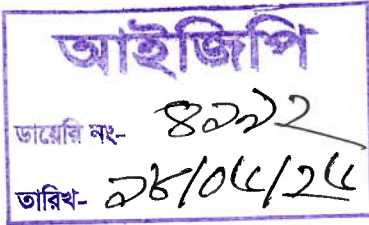 আইজিপি
ডায়েরি নং- ৪১১২
তারিখ- ১৮/০৫/২৫